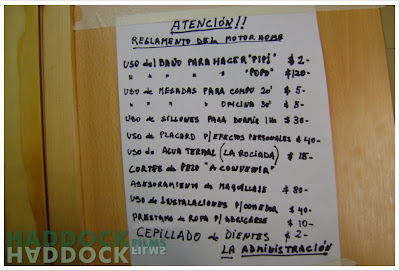 ATENCIÓN!!
REGLAMENTO DEL MOTOR HOME
USO del BAÑO PARA HACER "PIPÍ" $ 2-
" " " " " "POPO" $120-
USO de MESADAS PARA COMPU 20' $ 5-
" " " " OFICINA 30' $ 5-
USO de SILLONES PARA DORMIR 1 HR $ 30-
USO de PLACARD P/EFECTOS PERSONALES $ 40-
USO de AGUA TERMAL (LA ROCIADA) $ 15-
CORTES de PELO "A CONVENIR"
ASESORAMIENTO de MAQUILLAJE $ 80-
USO de INSTALACIONES P/COMEDOR $ 40-
PRESTAMO de ROPA P/ABRIGARSE $ 10-
CEPILLADO de DIENTES $ 2-
LA ADMINISTRACIÓN
HADDOCK FILMS
HADDOCK FILMS